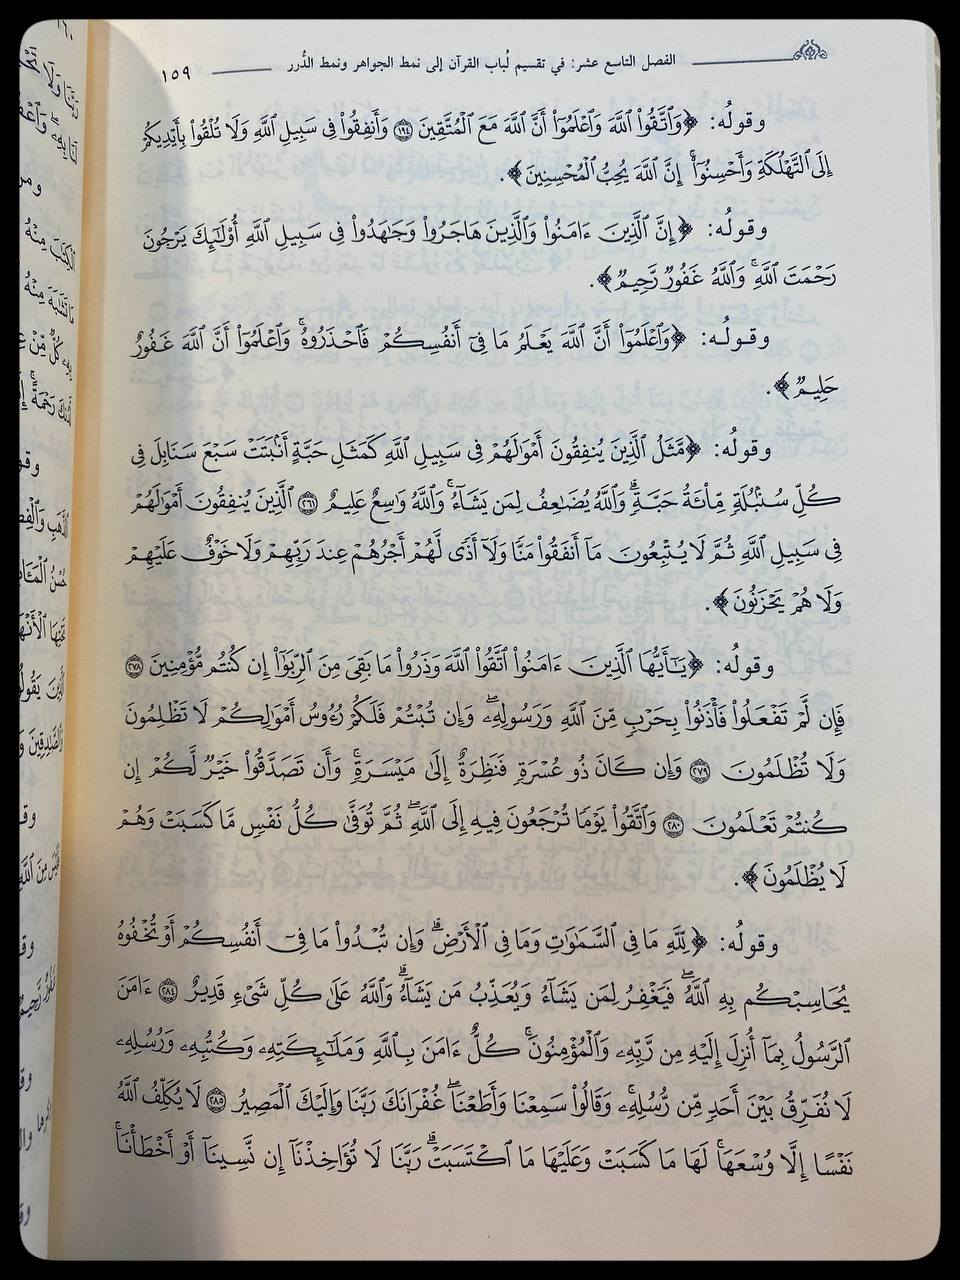 الفصل التاسع عشر: في تقسيم لُباب القرآن إلى نمط الجواهر ونمط الدُّرر
١٥٩
وقولُه: ﴿وَٱتَّقُوا۟ ٱللَّهَ وَٱعْلَمُوٓا۟ أَنَّ ٱللَّهَ مَعَ ٱلْمُتَّقِينَ ١٩٤ وَأَنفِقُوا۟ فِى سَبِيلِ ٱللَّهِ وَلَا تُلْقُوا۟ بِأَيْدِيكُمْ
إِلَى ٱلتَّهْلُكَةِ وَأَحْسِنُوٓا۟ إِنَّ ٱللَّهَ يُحِبُّ ٱلْمُحْسِنِينَ﴾.
وقولُه: ﴿إِنَّ ٱلَّذِينَ ءَامَنُوا۟ وَٱلَّذِينَ هَاجَرُوا۟ وَجَٰهَدُوا۟ فِى سَبِيلِ ٱللَّهِ أُو۟لَٰٓئِكَ يَرْجُونَ
رَحْمَتَ ٱللَّهِ ۚ وَٱللَّهُ غَفُورٌ رَّحِيمٌ﴾.
وقولُه: ﴿وَٱعْلَمُوٓا۟ أَنَّ ٱللَّهَ يَعْلَمُ مَا فِىٓ أَنفُسِكُمْ فَٱحْذَرُوهُ ۚ وَٱعْلَمُوٓا۟ أَنَّ ٱللَّهَ غَفُورٌ
حَلِيمٌ﴾.
وقولُه: ﴿مَّثَلُ ٱلَّذِينَ يُنفِقُونَ أَمْوَٰلَهُمْ فِى سَبِيلِ ٱللَّهِ كَمَثَلِ حَبَّةٍ أَنۢبَتَتْ سَبْعَ سَنَابِلَ فِى
كُلِّ سُنۢبُلَةٍ مِّا۟ئَةُ حَبَّةٍ ۗ وَٱللَّهُ يُضَٰعِفُ لِمَن يَشَآءُ ۚ وَٱللَّهُ وَٰسِعٌ عَلِيمٌ ٢٦١ ٱلَّذِينَ يُنفِقُونَ أَمْوَٰلَهُمْ
فِى سَبِيلِ ٱللَّهِ ثُمَّ لَا يُتْبِعُونَ مَآ أَنفَقُوا۟ مَنًّا وَلَآ أَذًى لَّهُمْ أَجْرُهُمْ عِندَ رَبِّهِمْ وَلَا خَوْفٌ عَلَيْهِمْ
وَلَا هُمْ يَحْزَنُونَ﴾.
وقولُه: ﴿يَٰٓأَيُّهَا ٱلَّذِينَ ءَامَنُوا۟ ٱتَّقُوا۟ ٱللَّهَ وَذَرُوا۟ مَا بَقِىَ مِنَ ٱلرِّبَوٰٓا۟ إِن كُنتُم مُّؤْمِنِينَ ٢٧٨
فَإِن لَّمْ تَفْعَلُوا۟ فَأْذَنُوا۟ بِحَرْبٍ مِّنَ ٱللَّهِ وَرَسُولِهِۦ ۖ وَإِن تُبْتُمْ فَلَكُمْ رُءُوسُ أَمْوَٰلِكُمْ لَا تَظْلِمُونَ
وَلَا تُظْلَمُونَ ٢٧٩ وَإِن كَانَ ذُو عُسْرَةٍ فَنَظِرَةٌ إِلَىٰ مَيْسَرَةٍ ۚ وَأَن تَصَدَّقُوا۟ خَيْرٌ لَّكُمْ إِن
كُنتُمْ تَعْلَمُونَ ٢٨٠ وَٱتَّقُوا۟ يَوْمًا تُرْجَعُونَ فِيهِ إِلَى ٱللَّهِ ۖ ثُمَّ تُوَفَّىٰ كُلُّ نَفْسٍ مَّا كَسَبَتْ وَهُمْ
لَا يُظْلَمُونَ﴾.
وقولُه: ﴿لِّلَّهِ مَا فِى ٱلسَّمَٰوَٰتِ وَمَا فِى ٱلْأَرْضِ ۗ وَإِن تُبْدُوا۟ مَا فِىٓ أَنفُسِكُمْ أَوْ تُخْفُوهُ
يُحَاسِبْكُم بِهِ ٱللَّهُ ۖ فَيَغْفِرُ لِمَن يَشَآءُ وَيُعَذِّبُ مَن يَشَآءُ ۗ وَٱللَّهُ عَلَىٰ كُلِّ شَىْءٍ قَدِيرٌ ٢٨٤ ءَامَنَ
ٱلرَّسُولُ بِمَآ أُنزِلَ إِلَيْهِ مِن رَّبِّهِۦ وَٱلْمُؤْمِنُونَ ۚ كُلٌّ ءَامَنَ بِٱللَّهِ وَمَلَٰٓئِكَتِهِۦ وَكُتُبِهِۦ وَرُسُلِهِۦ
لَا نُفَرِّقُ بَيْنَ أَحَدٍ مِّن رُّسُلِهِۦ ۚ وَقَالُوا۟ سَمِعْنَا وَأَطَعْنَا ۖ غُفْرَانَكَ رَبَّنَا وَإِلَيْكَ ٱلْمَصِيرُ ٢٨٥ لَا يُكَلِّفُ ٱللَّهُ
نَفْسًا إِلَّا وُسْعَهَا ۚ لَهَا مَا كَسَبَتْ وَعَلَيْهَا مَا ٱكْتَسَبَتْ ۗ رَبَّنَا لَا تُؤَاخِذْنَآ إِن نَّسِينَآ أَوْ أَخْطَأْنَا ۚ